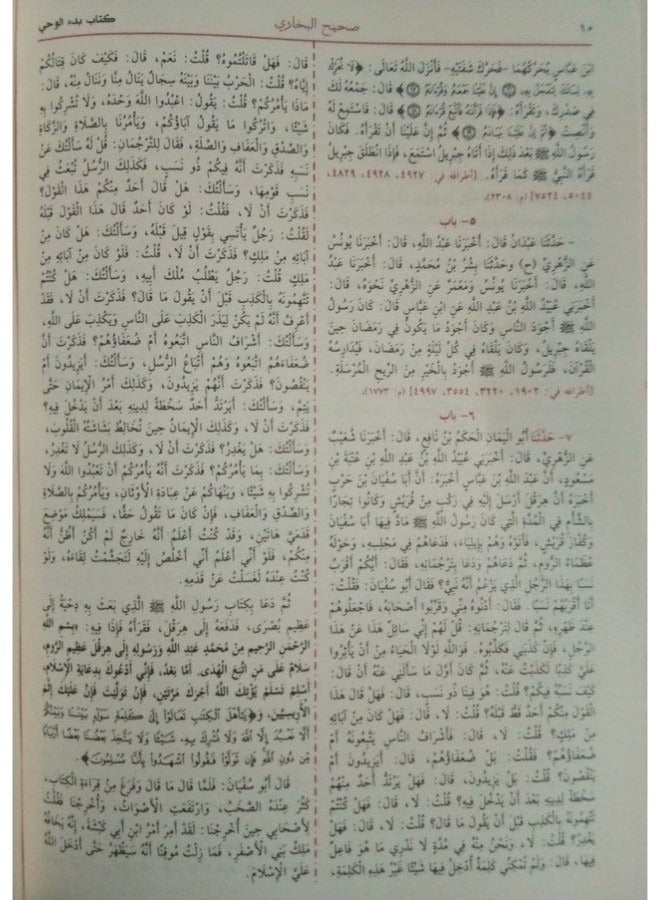 ١٥
صحيح البخاري
كتاب بدء الوحي
ابْنُ عَبَّاسٍ يُحَرِّكُهُمَا -فَحَرَّكَ شَفَتَيْهِ- فَأَنْزَلَ اللَّهُ تَعَالَى: ﴿لَا تُحَرِّكْ
بِهِ لِسَانَكَ لِتَعْجَلَ بِهِ إِنَّ عَلَيْنَا جَمْعَهُ وَقُرْآنَهُ﴾ قَالَ: جَمْعُهُ لَكَ
فِي صَدْرِكَ، وَتَقْرَأَهُ: ﴿فَإِذَا قَرَأْنَاهُ فَاتَّبِعْ قُرْآنَهُ﴾ قَالَ: فَاسْتَمِعْ لَهُ
وَأَنْصِتْ ﴿ثُمَّ إِنَّ عَلَيْنَا بَيَانَهُ﴾ ثُمَّ إِنَّ عَلَيْنَا أَنْ تَقْرَأَهُ. فَكَانَ
رَسُولُ اللَّهِ ﷺ بَعْدَ ذَلِكَ إِذَا أَتَاهُ جِبْرِيلُ اسْتَمَعَ، فَإِذَا انْطَلَقَ جِبْرِيلُ
قَرَأَهُ النَّبِيُّ ﷺ كَمَا قَرَأَهُ. [أطرافه في: ٤٩٢٧، ٤٩٢٨، ٤٨٢٩،
٥٠٤٤، ٧٥٢٤] (م: ٢٣٠٨).
٥- باب
- حَدَّثَنَا عَبْدَانُ قَالَ: أَخْبَرَنَا عَبْدُ اللَّهِ، قَالَ: أَخْبَرَنَا يُونُسُ
عَنِ الزُّهْرِيِّ (ح) وَحَدَّثَنَا بِشْرُ بْنُ مُحَمَّدٍ، قَالَ: أَخْبَرَنَا عَبْدُ
اللَّهِ، قَالَ: أَخْبَرَنَا يُونُسُ وَمَعْمَرٌ عَنِ الزُّهْرِيِّ نَحْوَهُ، قَالَ:
أَخْبَرَنِي عُبَيْدُ اللَّهِ بْنُ عَبْدِ اللَّهِ عَنِ ابْنِ عَبَّاسٍ قَالَ: كَانَ رَسُولُ اللَّهِ
ﷺ أَجْوَدَ النَّاسِ وَكَانَ أَجْوَدَ مَا يَكُونُ فِي رَمَضَانَ حِينَ
يَلْقَاهُ جِبْرِيلُ، وَكَانَ يَلْقَاهُ فِي كُلِّ لَيْلَةٍ مِنْ رَمَضَانَ، فَيُدَارِسُهُ
الْقُرْآنَ، فَلَرَسُولُ اللَّهِ ﷺ أَجْوَدُ بِالْخَيْرِ مِنَ الرِّيحِ الْمُرْسَلَةِ.
[أطرافه في: ١٩٠٢، ٣٢٢٠، ٣٥٥٤، ٤٩٩٧] (م: ١٧٧٣).
٦- باب
٧- حَدَّثَنَا أَبُو الْيَمَانِ الْحَكَمُ بْنُ نَافِعٍ، قَالَ: أَخْبَرَنَا شُعَيْبٌ
عَنِ الزُّهْرِيِّ، قَالَ: أَخْبَرَنِي عُبَيْدُ اللَّهِ بْنُ عَبْدِ اللَّهِ بْنِ عُتْبَةَ بْنِ
مَسْعُودٍ، أَنَّ عَبْدَ اللَّهِ بْنَ عَبَّاسٍ أَخْبَرَهُ: أَنَّ أَبَا سُفْيَانَ بْنَ حَرْبٍ
أَخْبَرَهُ أَنَّ هِرَقْلَ أَرْسَلَ إِلَيْهِ فِي رَكْبٍ مِنْ قُرَيْشٍ وَكَانُوا تِجَارًا
بِالشَّأْمِ فِي الْمُدَّةِ الَّتِي كَانَ رَسُولُ اللَّهِ ﷺ مَادَّ فِيهَا أَبَا سُفْيَانَ
وَكُفَّارَ قُرَيْشٍ، فَأَتَوْهُ وَهُمْ بِإِيلِيَاءَ، فَدَعَاهُمْ فِي مَجْلِسِهِ، وَحَوْلَهُ
عُظَمَاءُ الرُّومِ، ثُمَّ دَعَاهُمْ وَدَعَا بِتَرْجُمَانِهِ، فَقَالَ: أَيُّكُمْ أَقْرَبُ
نَسَبًا بِهَذَا الرَّجُلِ الَّذِي يَزْعُمُ أَنَّهُ نَبِيٌّ؟ فَقَالَ أَبُو سُفْيَانَ: فَقُلْتُ:
أَنَا أَقْرَبُهُمْ نَسَبًا. فَقَالَ: أَدْنُوهُ مِنِّي وَقَرِّبُوا أَصْحَابَهُ، فَاجْعَلُوهُمْ
عِنْدَ ظَهْرِهِ، ثُمَّ قَالَ لِتَرْجُمَانِهِ: قُلْ لَهُمْ إِنِّي سَائِلٌ هَذَا عَنْ هَذَا
الرَّجُلِ، فَإِنْ كَذَبَنِي فَكَذِّبُوهُ. فَوَاللَّهِ لَوْلَا الْحَيَاءُ مِنْ أَنْ يَأْثُرُوا
عَلَيَّ كَذِبًا لَكَذَبْتُ عَنْهُ، ثُمَّ كَانَ أَوَّلَ مَا سَأَلَنِي عَنْهُ أَنْ قَالَ:
كَيْفَ نَسَبُهُ فِيكُمْ؟ قُلْتُ: هُوَ فِينَا ذُو نَسَبٍ، قَالَ: فَهَلْ قَالَ هَذَا
الْقَوْلَ مِنْكُمْ أَحَدٌ قَطُّ قَبْلَهُ؟ قُلْتُ: لَا، قَالَ: فَهَلْ كَانَ مِنْ آبَائِهِ
مِنْ مَلِكٍ؟ قُلْتُ: لَا، قَالَ: فَأَشْرَافُ النَّاسِ يَتَّبِعُونَهُ أَمْ
ضُعَفَاؤُهُمْ؟ فَقُلْتُ: بَلْ ضُعَفَاؤُهُمْ، قَالَ: أَيَزِيدُونَ أَمْ
يَنْقُصُونَ؟ قُلْتُ: بَلْ يَزِيدُونَ، قَالَ: فَهَلْ يَرْتَدُّ أَحَدٌ مِنْهُمْ
سَخْطَةً لِدِينِهِ بَعْدَ أَنْ يَدْخُلَ فِيهِ؟ قُلْتُ: لَا، قَالَ: فَهَلْ كُنْتُمْ
تَتَّهِمُونَهُ بِالْكَذِبِ قَبْلَ أَنْ يَقُولَ مَا قَالَ؟ قُلْتُ: لَا، قَالَ: فَهَلْ
يَغْدِرُ؟ قُلْتُ: لَا، وَنَحْنُ مِنْهُ فِي مُدَّةٍ لَا نَدْرِي مَا هُوَ فَاعِلٌ
فِيهَا، قَالَ: وَلَمْ تُمْكِنِّي كَلِمَةٌ أُدْخِلُ فِيهَا شَيْئًا غَيْرُ هَذِهِ الْكَلِمَةِ،
قَالَ: فَهَلْ قَاتَلْتُمُوهُ؟ قُلْتُ: نَعَمْ، قَالَ: فَكَيْفَ كَانَ قِتَالُكُمْ
إِيَّاهُ؟ قُلْتُ: الْحَرْبُ بَيْنَنَا وَبَيْنَهُ سِجَالٌ يَنَالُ مِنَّا وَنَنَالُ مِنْهُ، قَالَ:
مَاذَا يَأْمُرُكُمْ؟ قُلْتُ: يَقُولُ: اعْبُدُوا اللَّهَ وَحْدَهُ، وَلَا تُشْرِكُوا بِهِ
شَيْئًا، وَاتْرُكُوا مَا يَقُولُ آبَاؤُكُمْ، وَيَأْمُرُنَا بِالصَّلَاةِ وَالزَّكَاةِ
وَالصِّدْقِ وَالْعَفَافِ وَالصِّلَةِ، فَقَالَ لِلتَّرْجُمَانِ: قُلْ لَهُ سَأَلْتُكَ عَنْ
نَسَبِهِ فَذَكَرْتَ أَنَّهُ فِيكُمْ ذُو نَسَبٍ، فَكَذَلِكَ الرُّسُلُ تُبْعَثُ فِي
نَسَبِ قَوْمِهَا، وَسَأَلْتُكَ: هَلْ قَالَ أَحَدٌ مِنْكُمْ هَذَا الْقَوْلَ؟
فَذَكَرْتَ أَنْ لَا، فَقُلْتُ: لَوْ كَانَ أَحَدٌ قَالَ هَذَا الْقَوْلَ قَبْلَهُ
لَقُلْتُ: رَجُلٌ يَأْتَسِي بِقَوْلٍ قِيلَ قَبْلَهُ، وَسَأَلْتُكَ: هَلْ كَانَ مِنْ
آبَائِهِ مِنْ مَلِكٍ؟ فَذَكَرْتَ أَنْ لَا، قُلْتُ: فَلَوْ كَانَ مِنْ آبَائِهِ مِنْ
مَلِكٍ قُلْتُ: رَجُلٌ يَطْلُبُ مُلْكَ أَبِيهِ، وَسَأَلْتُكَ: هَلْ كُنْتُمْ
تَتَّهِمُونَهُ بِالْكَذِبِ قَبْلَ أَنْ يَقُولَ مَا قَالَ؟ فَذَكَرْتَ أَنْ لَا، فَقَدْ
أَعْرِفُ أَنَّهُ لَمْ يَكُنْ لِيَذَرَ الْكَذِبَ عَلَى النَّاسِ وَيَكْذِبَ عَلَى اللَّهِ،
وَسَأَلْتُكَ: أَشْرَافُ النَّاسِ اتَّبَعُوهُ أَمْ ضُعَفَاؤُهُمْ؟ فَذَكَرْتَ أَنَّ
ضُعَفَاءَهُمُ اتَّبَعُوهُ وَهُمْ أَتْبَاعُ الرُّسُلِ، وَسَأَلْتُكَ: أَيَزِيدُونَ أَمْ
يَنْقُصُونَ؟ فَذَكَرْتَ أَنَّهُمْ يَزِيدُونَ، وَكَذَلِكَ أَمْرُ الْإِيمَانِ حَتَّى
يَتِمَّ، وَسَأَلْتُكَ: أَيَرْتَدُّ أَحَدٌ سَخْطَةً لِدِينِهِ بَعْدَ أَنْ يَدْخُلَ فِيهِ؟
فَذَكَرْتَ أَنْ لَا، وَكَذَلِكَ الْإِيمَانُ حِينَ تُخَالِطُ بَشَاشَتُهُ الْقُلُوبَ،
وَسَأَلْتُكَ: هَلْ يَغْدِرُ؟ فَذَكَرْتَ أَنْ لَا، وَكَذَلِكَ الرُّسُلُ لَا تَغْدِرُ،
وَسَأَلْتُكَ: بِمَا يَأْمُرُكُمْ؟ فَذَكَرْتَ أَنَّهُ يَأْمُرُكُمْ أَنْ تَعْبُدُوا اللَّهَ وَلَا
تُشْرِكُوا بِهِ شَيْئًا، وَيَنْهَاكُمْ عَنْ عِبَادَةِ الْأَوْثَانِ، وَيَأْمُرُكُمْ بِالصَّلَاةِ
وَالصِّدْقِ وَالْعَفَافِ، فَإِنْ كَانَ مَا تَقُولُ حَقًّا، فَسَيَمْلِكُ مَوْضِعَ
قَدَمَيَّ هَاتَيْنِ، وَقَدْ كُنْتُ أَعْلَمُ أَنَّهُ خَارِجٌ لَمْ أَكُنْ أَظُنُّ أَنَّهُ
مِنْكُمْ، فَلَوْ أَنِّي أَعْلَمُ أَنِّي أَخْلُصُ إِلَيْهِ لَتَجَشَّمْتُ لِقَاءَهُ، وَلَوْ
كُنْتُ عِنْدَهُ لَغَسَلْتُ عَنْ قَدَمِهِ.
ثُمَّ دَعَا بِكِتَابِ رَسُولِ اللَّهِ ﷺ الَّذِي بَعَثَ بِهِ دِحْيَةُ إِلَى
عَظِيمِ بُصْرَى، فَدَفَعَهُ إِلَى هِرَقْلَ، فَقَرَأَهُ فَإِذَا فِيهِ: «بِسْمِ اللَّهِ
الرَّحْمَنِ الرَّحِيمِ مِنْ مُحَمَّدٍ عَبْدِ اللَّهِ وَرَسُولِهِ إِلَى هِرَقْلَ عَظِيمِ الرُّومِ،
سَلَامٌ عَلَى مَنِ اتَّبَعَ الْهُدَى. أَمَّا بَعْدُ، فَإِنِّي أَدْعُوكَ بِدِعَايَةِ الْإِسْلَامِ،
أَسْلِمْ تَسْلَمْ يُؤْتِكَ اللَّهُ أَجْرَكَ مَرَّتَيْنِ، فَإِنْ تَوَلَّيْتَ فَإِنَّ عَلَيْكَ إِثْمَ
الْأَرِيسِيِّينَ، وَ﴿يَا أَهْلَ الْكِتَابِ تَعَالَوْا إِلَى كَلِمَةٍ سَوَاءٍ بَيْنَنَا وَبَيْنَكُمْ
أَلَّا نَعْبُدَ إِلَّا اللَّهَ وَلَا نُشْرِكَ بِهِ شَيْئًا وَلَا يَتَّخِذَ بَعْضُنَا بَعْضًا أَرْبَابًا
مِنْ دُونِ اللَّهِ فَإِنْ تَوَلَّوْا فَقُولُوا اشْهَدُوا بِأَنَّا مُسْلِمُونَ﴾».
قَالَ أَبُو سُفْيَانَ: فَلَمَّا قَالَ مَا قَالَ وَفَرَغَ مِنْ قِرَاءَةِ الْكِتَابِ،
كَثُرَ عِنْدَهُ الصَّخَبُ، وَارْتَفَعَتِ الْأَصْوَاتُ، وَأُخْرِجْنَا فَقُلْتُ
لِأَصْحَابِي حِينَ أُخْرِجْنَا: لَقَدْ أَمِرَ أَمْرُ ابْنِ أَبِي كَبْشَةَ، إِنَّهُ يَخَافُهُ
مَلِكُ بَنِي الْأَصْفَرِ، فَمَا زِلْتُ مُوقِنًا أَنَّهُ سَيَظْهَرُ حَتَّى أَدْخَلَ اللَّهُ
عَلَيَّ الْإِسْلَامَ.